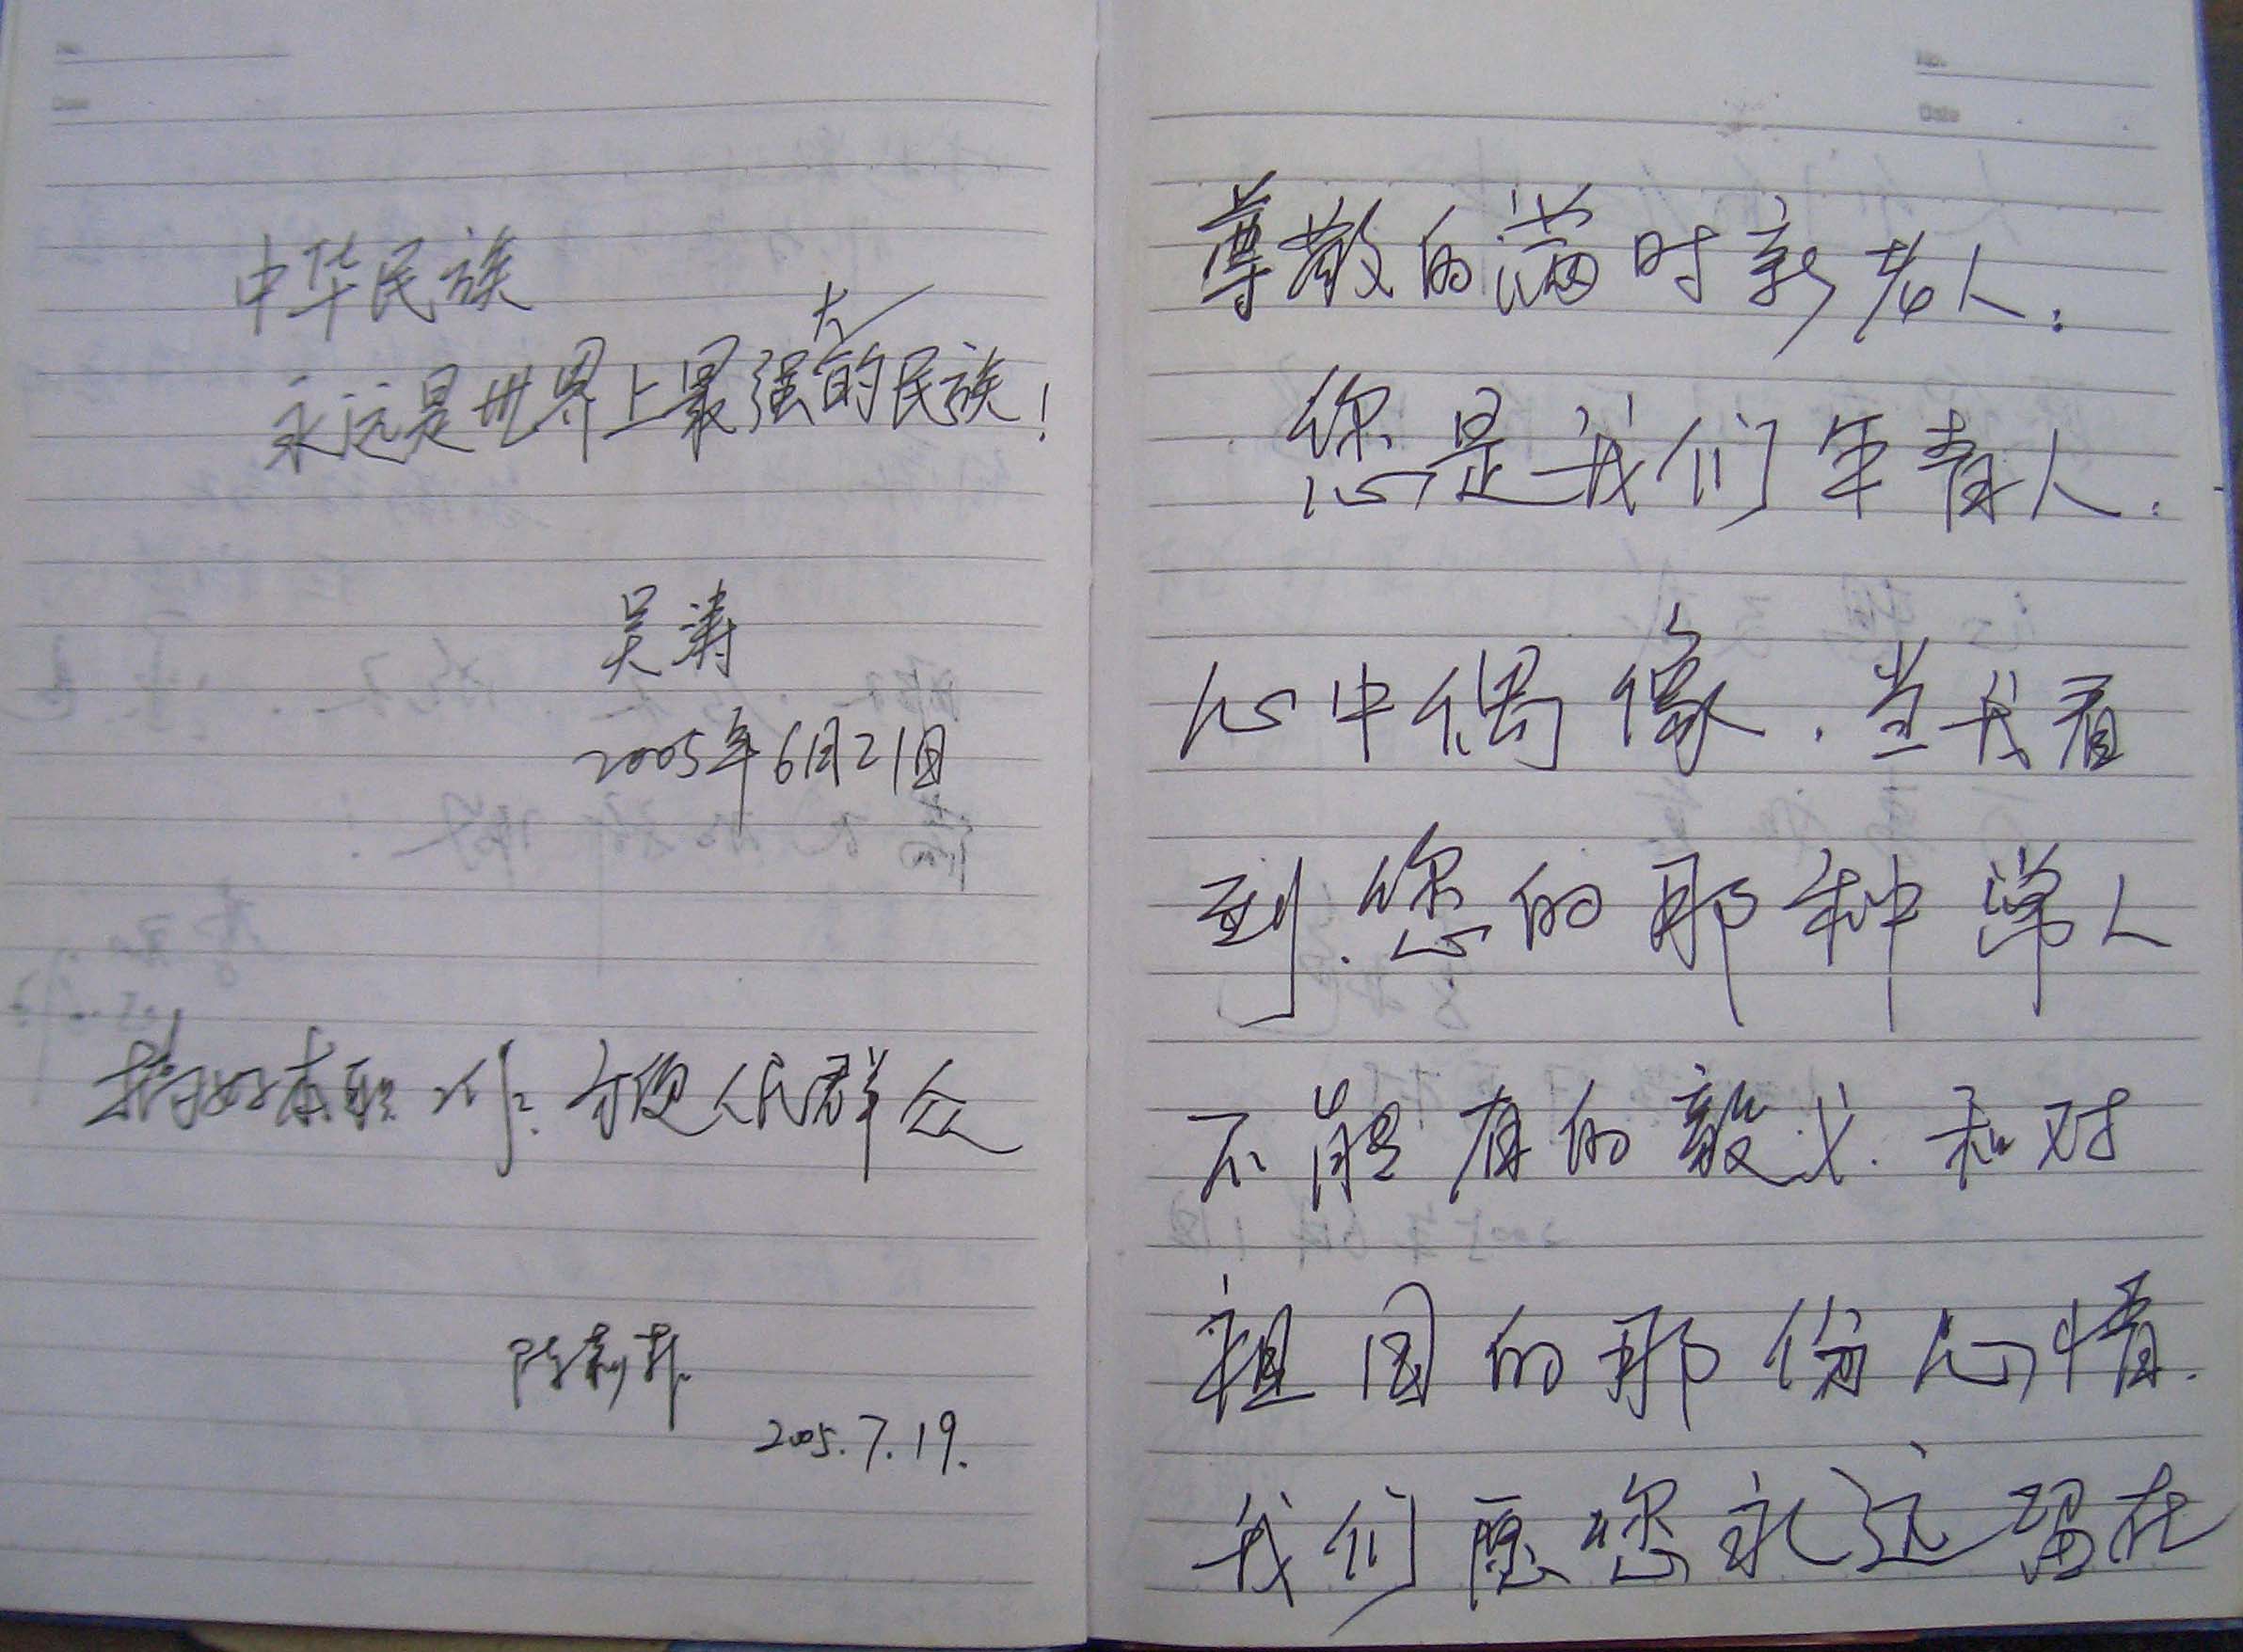 中华民族
永远是世界上最强大的民族!
吴涛
2005年6月21日
搞好本职工作:方便人民群众
陈
2005.7.19.
尊敬的满时新老人:
您是我们年青人.
心中偶像.当我看
到.您的那种常人
不能有的毅力.和对
祖国的那份心情.
我们愿您永远留在